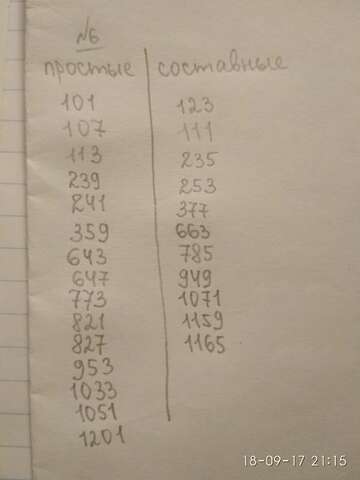 №6
простые | составные
101 123
107 111
113 235
239 253
241 377
359 663
643 785
647 949
773 1071
821 1159
827 1165
953
1033
1051
1201
18-09-17 21:15